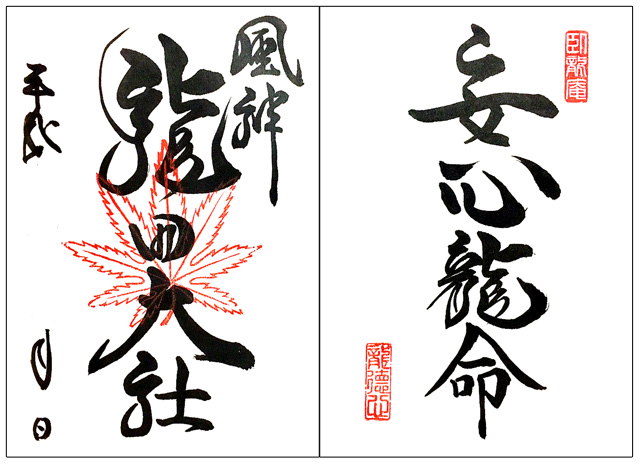 臥龍庵
安心龍命
風神
龍田大社
平成
月日